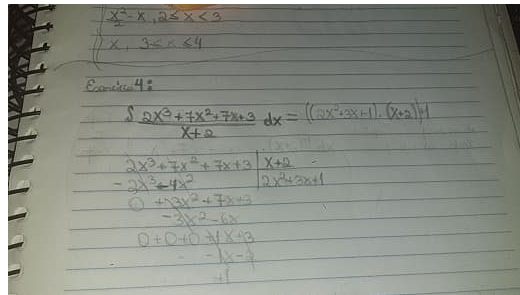 x²/2 - x, 2 ≤ x < 3
x, 3 ≤ x ≤ 4
Exercício 4:
∫ (2x³+7x²+7x+3)/(x+2) dx = ((2x²+3x+1).(x+2))+1
2x³+7x²+7x+3 | x+2
-2x³-4x² | 2x²+3x+1
0 + 3x²+7x+3
-3x²-6x
0+0+0+1x+3
-1x-2
+1